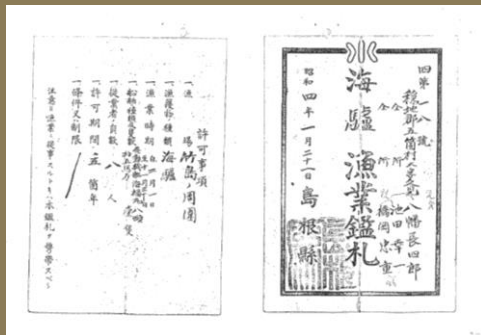 四第一八號
穏地郡五箇村大字久見 八幡長四郎
仝所 池田幸一
仝所 橋岡忠重
海驢漁業鑑札
昭和四年一月二十一日 島根縣
許可事項
一、漁場 竹島ノ周圍
一、漁獲物ノ種類 海驢
一、漁業時期 自四月一日
一、船舶種類及隻数
一、従業者ノ員数 八人
一、許可期間 五箇年
一、條件又ハ制限
注意 漁業ニ従事スルトキハ本鑑札ヲ携帯スベシ